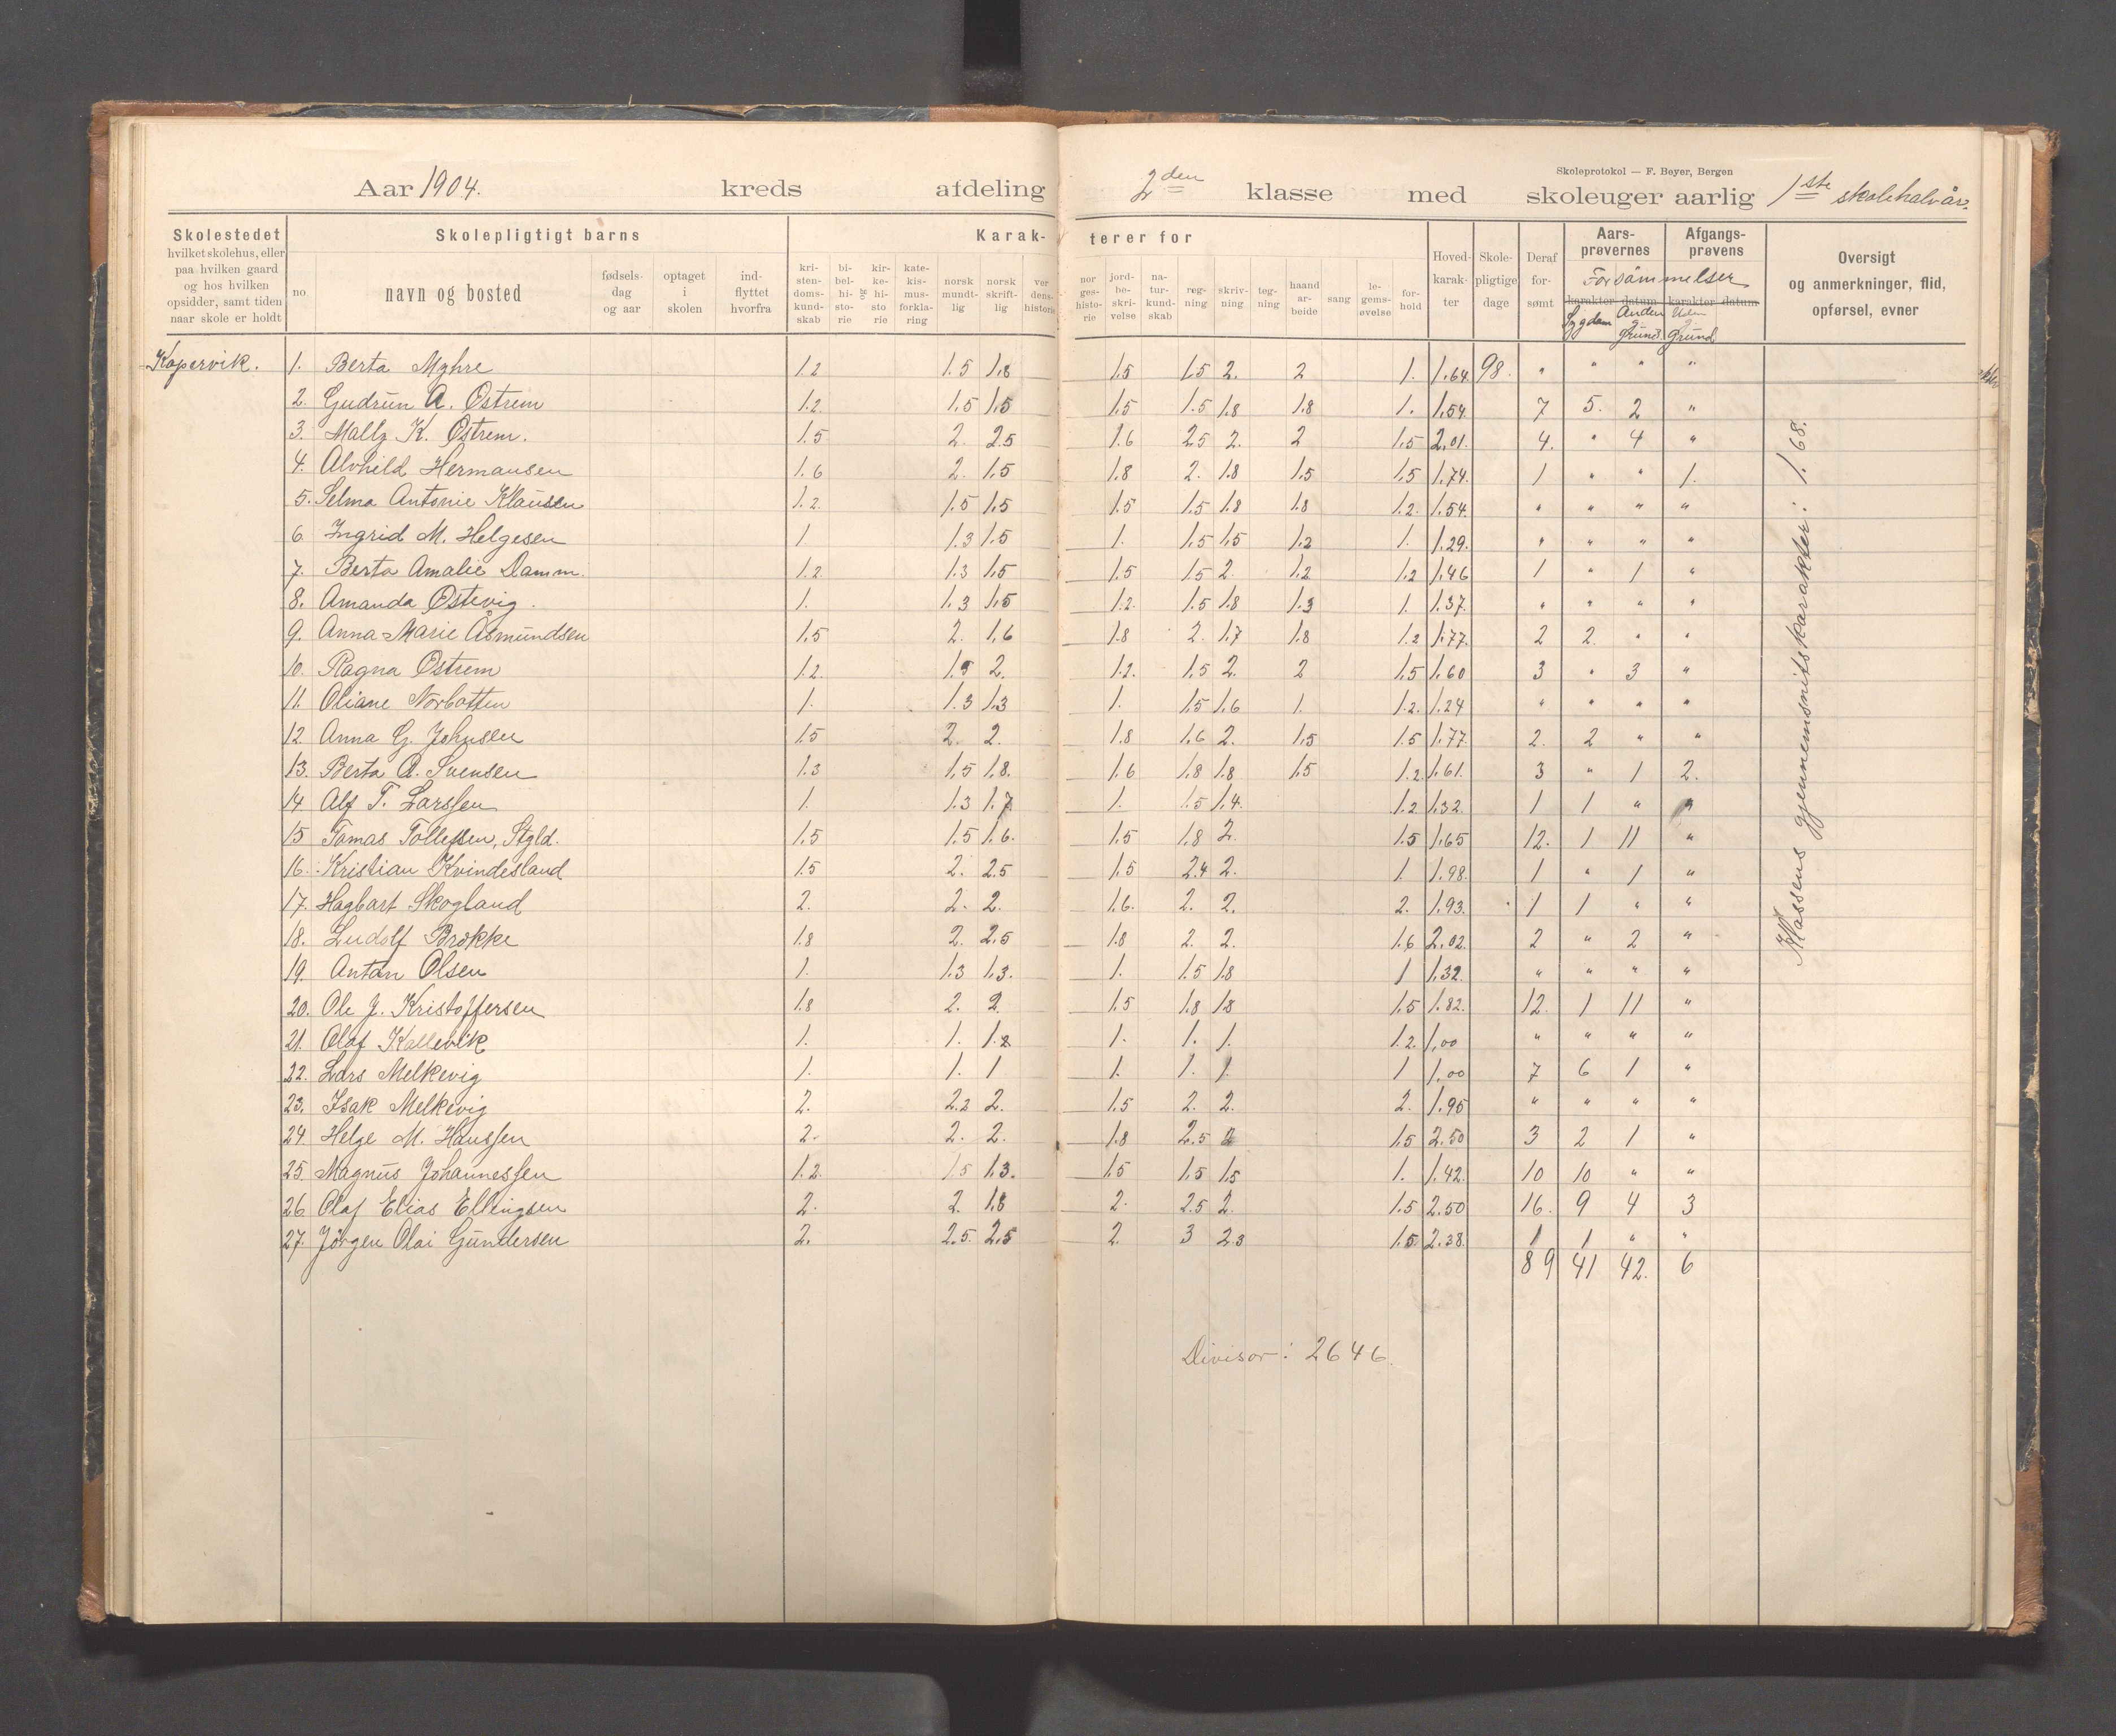 Skoleprotokol — F. Beyer, Bergen
Aar 1904. kreds afdeling 2den klasse med skoleuger aarlig 1ste skolehalvår.
Skolestedet hvilket skolehus, eller paa hvilken gaard og hos hvilken opsidder, samt tiden naar skole er holdt
Skolepligtigt barns
no. navn og bosted fødselsdag og aar optaget i skolen indflyttet hvorfra
Karakterer for
kristendomskundskab bibelhistorie kirkehistorie katekismusforklaring norsk mundtlig norsk skriftlig verdenshistorie nor geshistorie jordbeskrivelse naturkundskab regning skrivning tegning haandarbeide sang legemsøvelse forhold
Hovedkarakter Skolepligtige dage Deraf forsømt
Aarsprøvernes Afgangsprøvens
Forsømmelser
karakter datum karakter datum
Sygdom Anden Grund Uden Grund
Oversigt og anmerkninger, flid, opførsel, evner
Kopervik. 1. Berta Myhre 1.2 1.5 1.8 1.5 1.5 2. 2 1. 1.64 98. " " " "
2. Gudrun A. Østrem 1.2. 1.5 1.5 1.5 1.5 1.8 1.8 1. 1.54. 7 5. 2 "
3. Mally K. Østrem. 1.5 2. 2.5 1.6 2.5 2. 2 1.5 2.01. 4. " 4 "
4. Alvhild Hermansen 1.6 2. 1.5 1.8 2. 1.8 1.5 1.5 1.74. 1 " " 1.
5. Selma Antonie Klausen 1.2. 1.5 1.5 1.5 1.5 1.8 1.8 1.2. 1.54. " " " "
6. Ingrid M. Helgesen 1 1.3 1.5 1. 1.5 1.5 1.2 1. 1.29. " " " "
7. Berta Amalie Damm. 1.2. 1.3 1.5 1.5 1.5 2. 1.2 1.2 1.46 1 " 1 "
8. Amanda Østevig. 1. 1.3 1.5 1.2. 1.5 1.8 1.3 1. 1.37. " " " "
9. Anna Marie Åsmundsen 1.5 2. 1.6 1.8 2. 1.7 1.8 1.2 1.77. 2 2. " "
10. Ragna Østrem 1.2. 1.5 2. 1.2. 1.5 2. 2 1.5 1.60 3 " 3 "
11. Oliane Norbotten 1. 1.3 1.3 1. 1.5 1.6 1. 1.2. 1.24 " " " "
12. Anna G. Johnsen 1.5 2. 2. 1.8 1.6 2. 1.5 1.5 1.77. 2. 2 " "
13. Berta A. Svensen 1.3 1.5 1.8. 1.6 1.8 1.8 1.5 1.2. 1.61. 3 " 1 2.
14. Alf T. Larssen 1. 1.3 1.7 1. 1.5 1.4. 1.2. 1.32. 1 1 " "
15 Tomas Tollefsen, Stgld. 1.5 1.5 1.6. 1.5 1.8 2. 1.5 1.65 12. 1 11 "
16. Kristian Kvindesland 1.5 2. 2.5 1.5 2.4 2. 1 1.98. 1 " 1 "
17. Hagbart Skogland 2. 2. 2. 1.6. 2. 2. 2. 1.93. 1 1 " "
18. Ludolf Brokke 1.8 2. 2.5 1.8 2. 2. 1.6 2.02. 2 " 2 "
19. Anton Olsen 1. 1.3 1.3. 1. 1.5 1.8 1 1.32. " " " "
20. Ole J. Kristoffersen 1.8 2. 2. 1.5 1.8 1.8 1.5 1.82. 12. 1 11 "
21. Olaf Kallevik 1. 1. 1.2 1. 1. 1. 1.2. 1,00 " " " "
22. Lars Melkevig 1. 1. 1 1. 1. 1. 1 1,00 7 6 1 "
23. Isak Melkevig 2. 2.2 2. 1.5 2. 2. 2. 1.95 " " " "
24. Helge M. Hanssen 2. 2. 2. 1.8 2.5 2 1.5 2.50 3 2 1 "
25. Magnus Johannessen 1.2. 1.5 1.3. 1.5 1.5 1.5 1. 1.42. 10 10 " "
26. Olaf Elias Ellingsen 2. 2. 1.8 2. 2.5 2. 1.5 2.50 16. 9 4 3
27. Jörgen Olai Gundersen 2. 2.5. 2.5 2. 3 2.3 1.5 2.38. 1 1 " "
89 41 42. 6
Divisor: 2646.
Klassens gjennemsnitskarakter: 1.68.